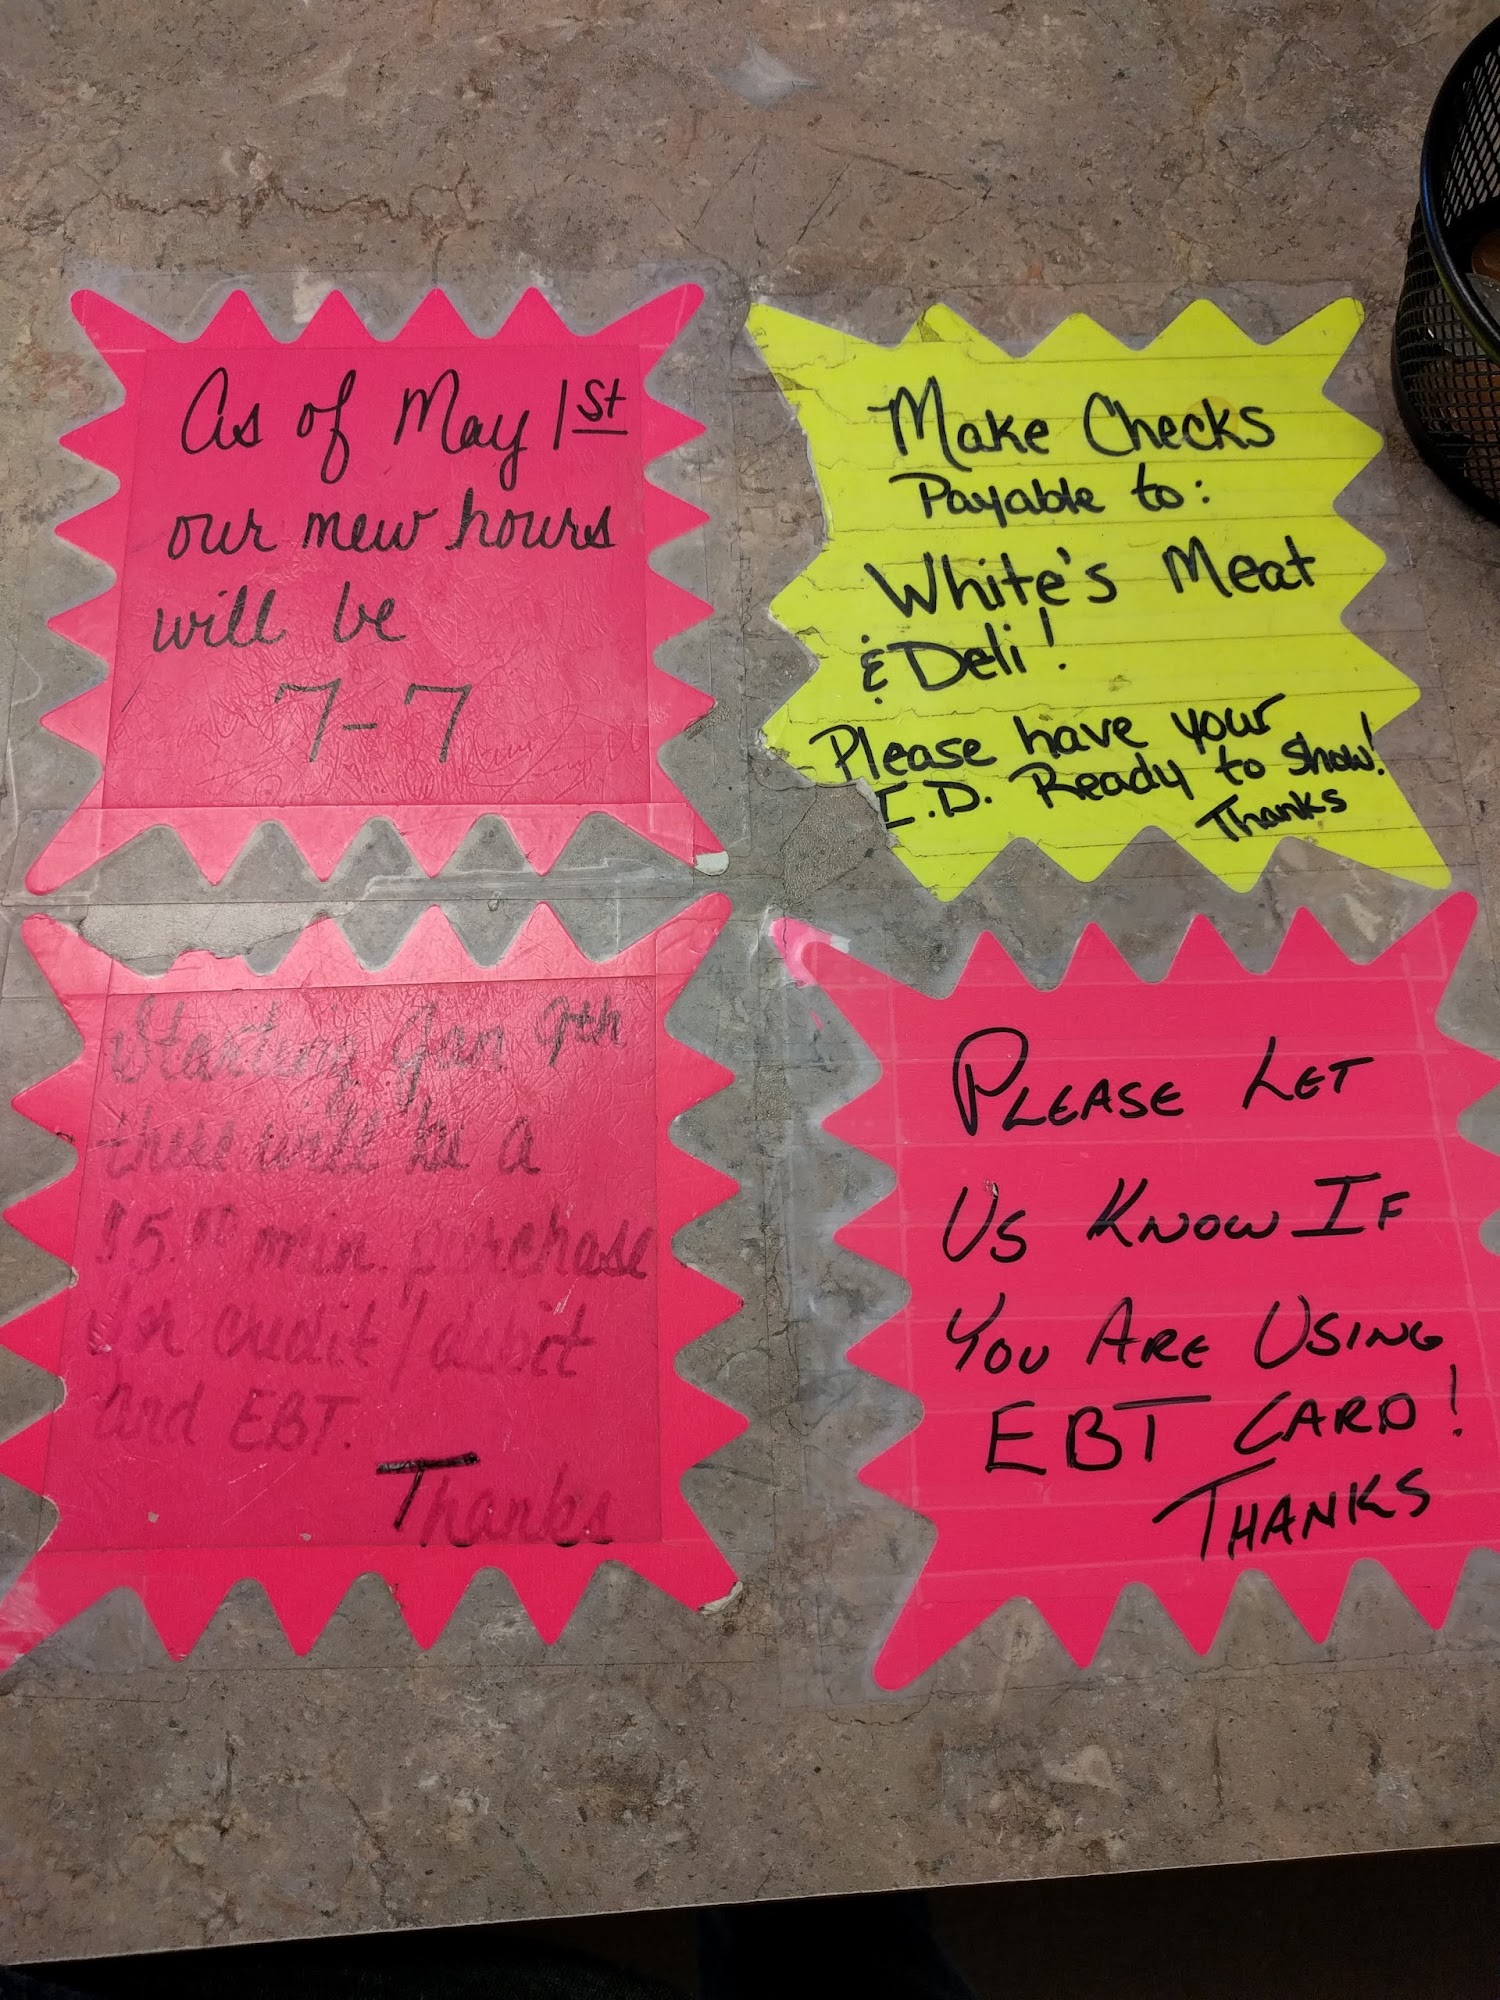 As of May 1st
our new hours
will be
7-7
Make Checks
Payable to:
White's Meat
& Deli!
Please have your
I.D. Ready to show!
Thanks
Starting Jan 9th
there will be a
$5.00 min. purchase
for credit/debit
and EBT.
Thanks
PLEASE LET
US KNOW IF
YOU ARE USING
EBT CARD!
THANKS